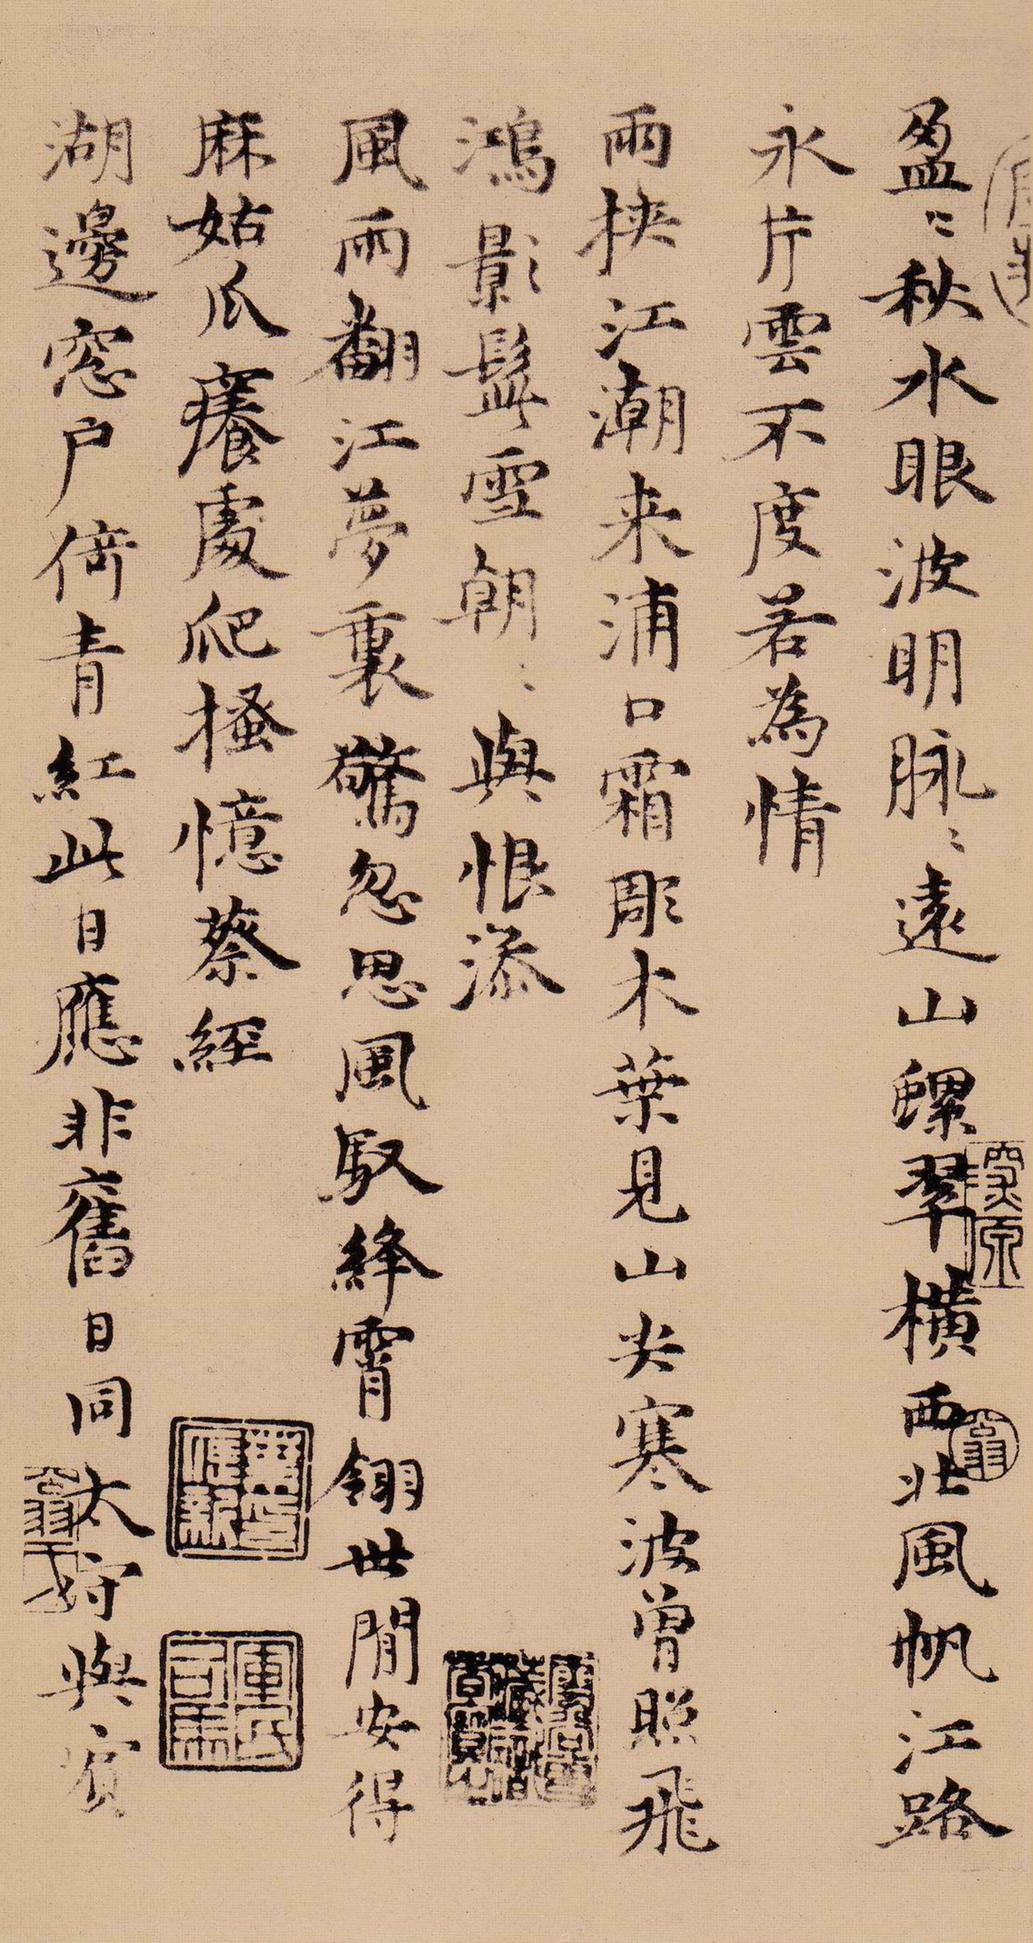 盈〻秋水眼波明脉〻遠山螺翠橫西北風帆江路
永片雲不度若為情
兩挾江潮来浦口霜彫木葉見山尖寒波曾照飛
鴻影鬢雪朝〻與恨添
風雨翻江夢裏驚忽思風馭絳霄翎世間安得
麻姑爪癢處爬搔憶蔡經
湖邊窓戶倚青紅此日應非舊日同太守與賓